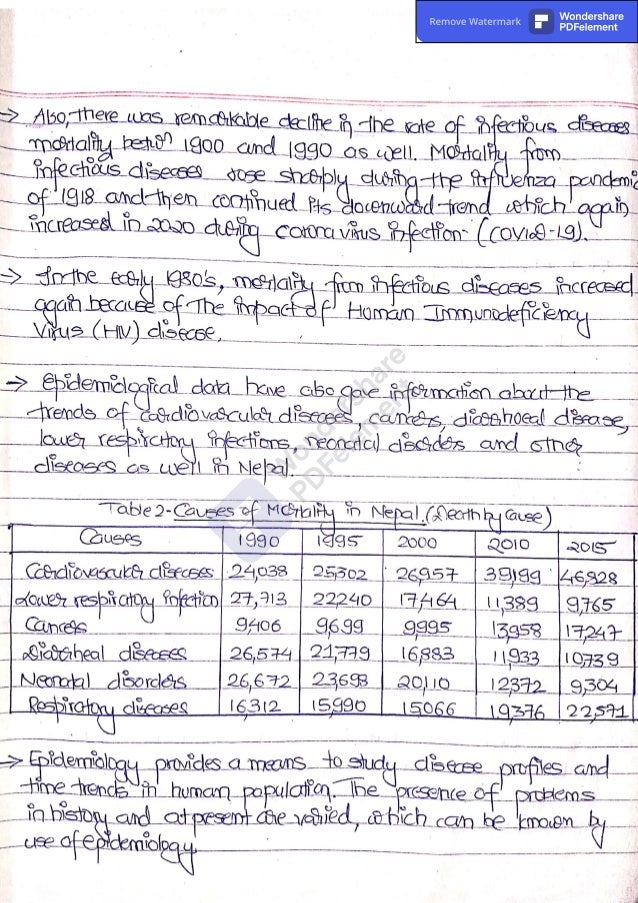 Remove Watermark
Wondershare
PDFelement
→ Also, there was remarkable decline in the rate of infectious diseases
mortality betn 1900 and 1990 as well. Mortality from
infectious diseases rose sharply during the influenza pandemic
of 1918 and then continued its downward trend which again
increased in 2020 during corona virus infection (COVID-19).
→ In the early 1980's, mortality from infectious diseases increased
again because of The impact of Human Immunodeficiency
Virus (HIV) disease.
→ Epidemiological data have also gave information about the
trends of cardiovascular diseases, cancers, diarrhoeal disease,
lower respiratory infections, neonatal disorders and other
diseases as well in Nepal.
Wondershare
PDFelement
Table 2- Causes of Mortality in Nepal. (Death by cause)
Causes 1990 1995 2000 2010 2015
Cardiovascular diseases 24,038 25,302 26,957 39,199 46,928
Lower respiratory infection 27,713 22,240 17,464 11,389 9,765
Cancers 9,406 9,699 9,995 13,958 17,247
Diarrheal diseases 26,574 21,779 16,883 11,933 10,739
Neonatal disorders 26,672 23,698 20,110 12,372 9,304
Respiratory diseases 16,312 15,990 15066 19,376 22,571
→ Epidemiology provides a means to study disease profiles and
time trends in human population. The presence of problems
in history and at present are varied, which can be known by
use of epidemiology.